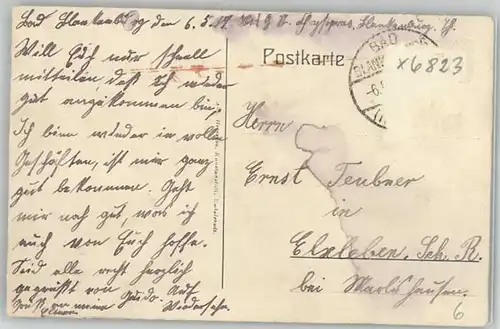 Bad Blankenburg den 6.5.19.
Blankenburg, Th.
Will Euch nur schnell
mitteilen, daß ich wieder
gut angekommen bin,
Ich bin wieder in vollen
Geschäften, ist mir ganz
gut bekommen. Geht
mir noch gut was ich
auch von Euch hoffe.
Seid alle recht herzlich
gegrüßt von Guido. Auf
Wiedersehn.
Postkarte
BAD
BLANK
x6823
Herrn
Ernst Teubner
in
Elxleben, Sch. R.
bei Marlishausen.
6